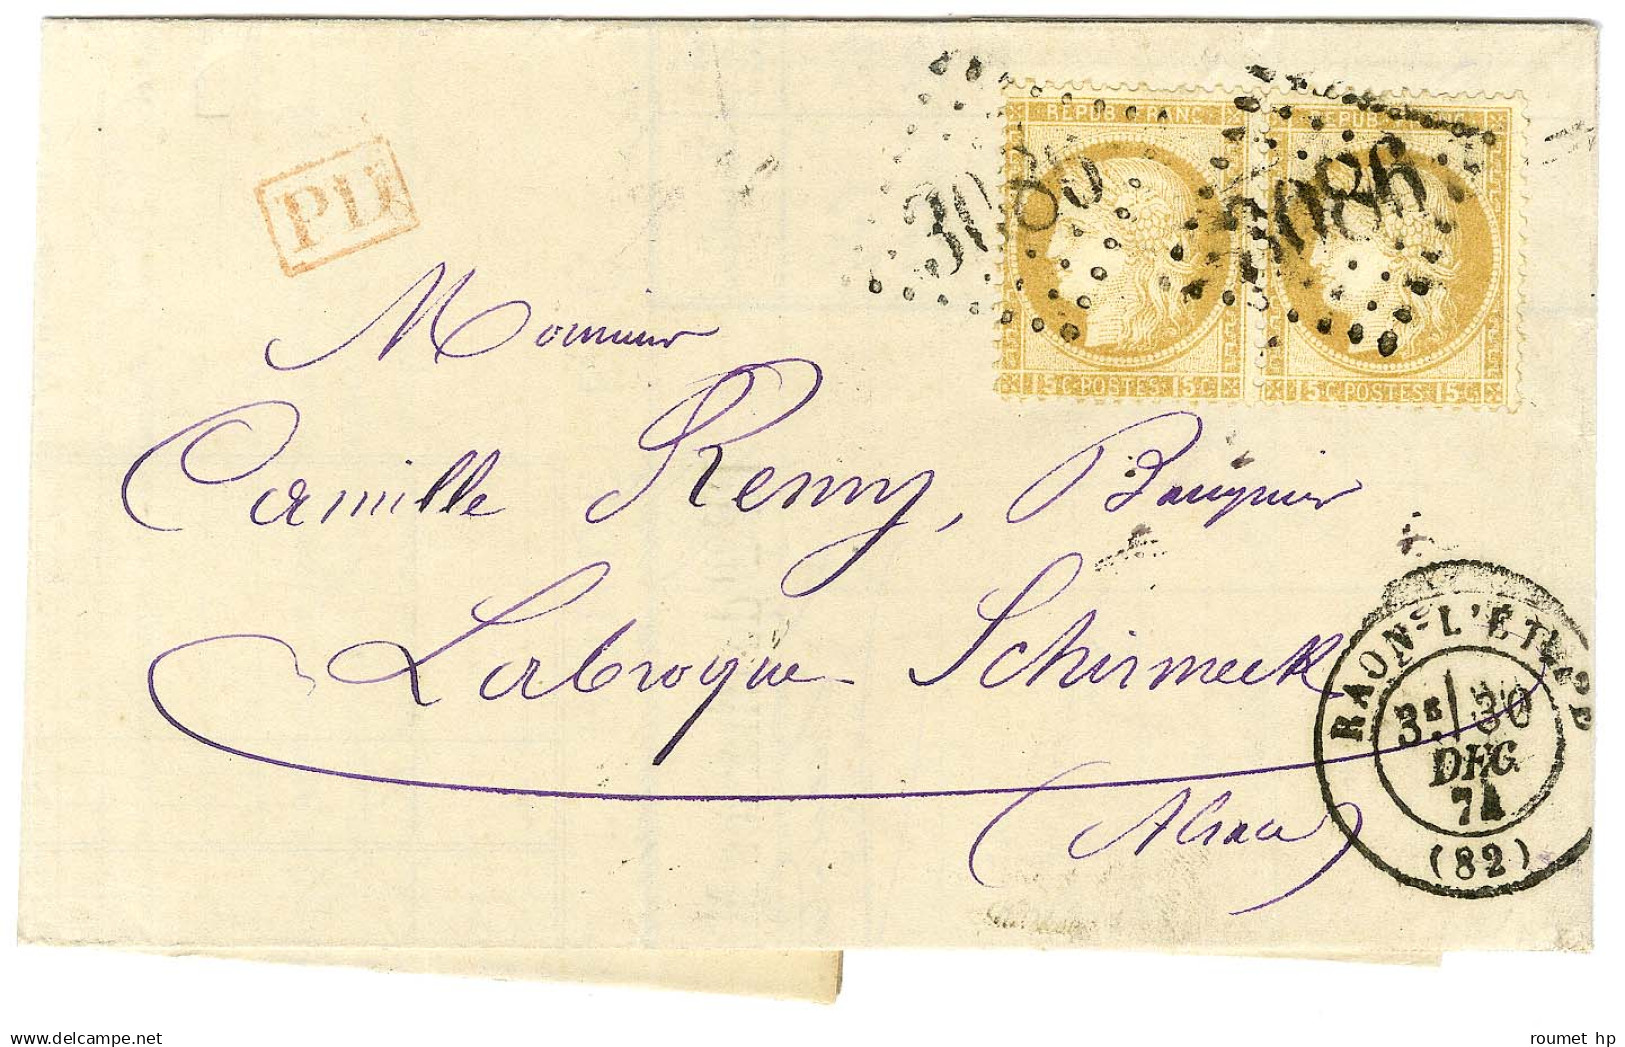 REPUB FRANC
3086
15 C·POSTES·15 C.
PUB F
3086
15 C·POSTES·15 C.
PD
Monsieur
Camille Remy, Banquier
Labroque Schirmeck
(Alsace)
RAON-L'ÉTAPE
3E 30
DEC.
74
(82)
delcampe.net
roumet hp